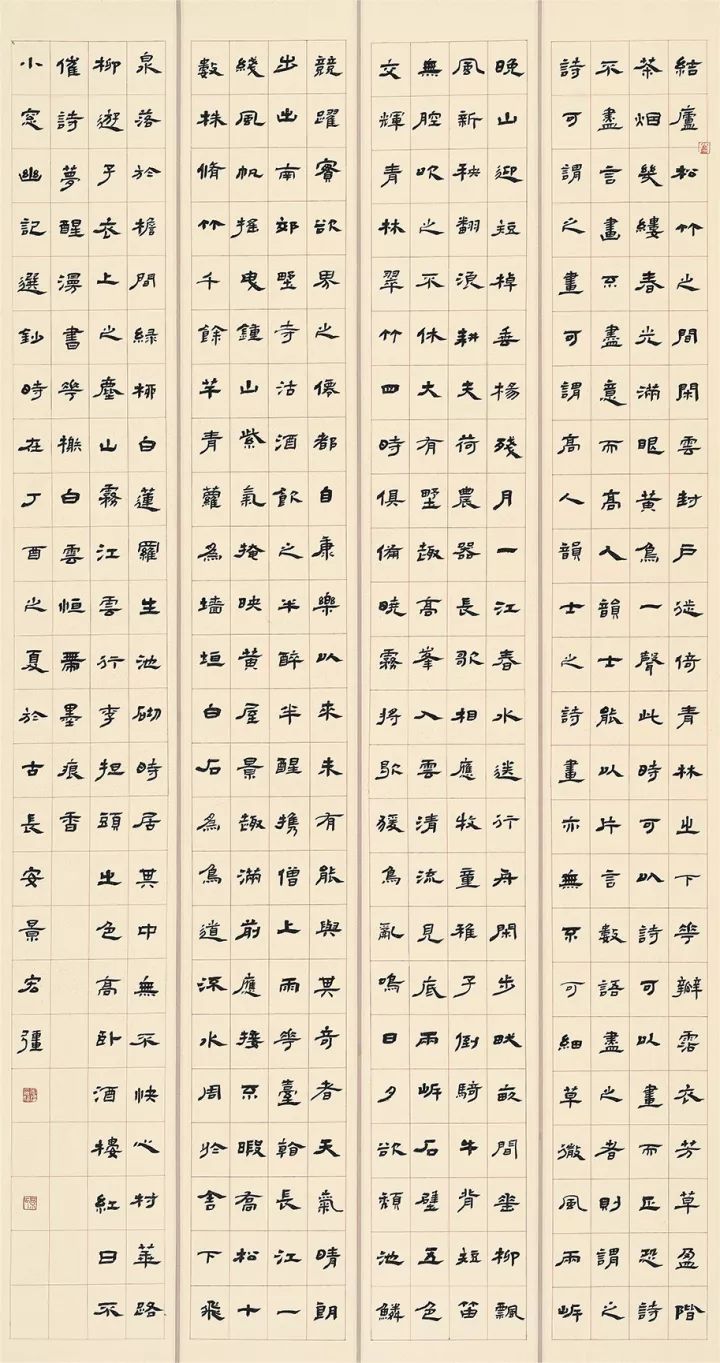 結廬松竹之間閑雲封戶徙倚青林之下花瓣霑衣芳草盈階
茶烟幾縷春光滿眼黃鳥一聲此時可以詩可以畫而正恐詩
不盡言畫不盡意而高人韻士能以片言數語盡之者則謂之
詩可謂之畫可謂高人韻士之詩畫亦無不可細草微風兩岸
晚山迎短棹垂楊殘月一江春水送行舟閑步畎畝間垂柳飄
風新秧翻浪耕夫荷農器長歌相應牧童稚子倒騎牛背短笛
無腔吹之不休大有墅趣高峯入雲清流見底兩岸石壁五色
交輝青林翠竹四時俱備曉霧將歇猨鳥亂鳴日夕欲頹池鱗
競躍實欲界之僊都自康樂以來未有能與其奇者天氣晴朗
出出南郊墅寺沽酒飲之半醉半醒攜僧上雨花臺看長江一
綫風帆搖曳鍾山紫氣掩映黃屋景趣滿前應接不暇喬松十
數株脩竹千餘竿青蘿為墻垣白石為鳥道流水周於舍下飛
泉落於檐間綠柳白蓮羅生池砌時居其中無不快心村花路
柳遊子衣上之塵山霧江雲行李担頭之色高臥酒樓紅日不
催詩夢醒漫書花榭白雲恒帶墨痕香
小窓幽記選鈔時在丁酉之夏於古長安景宏彊